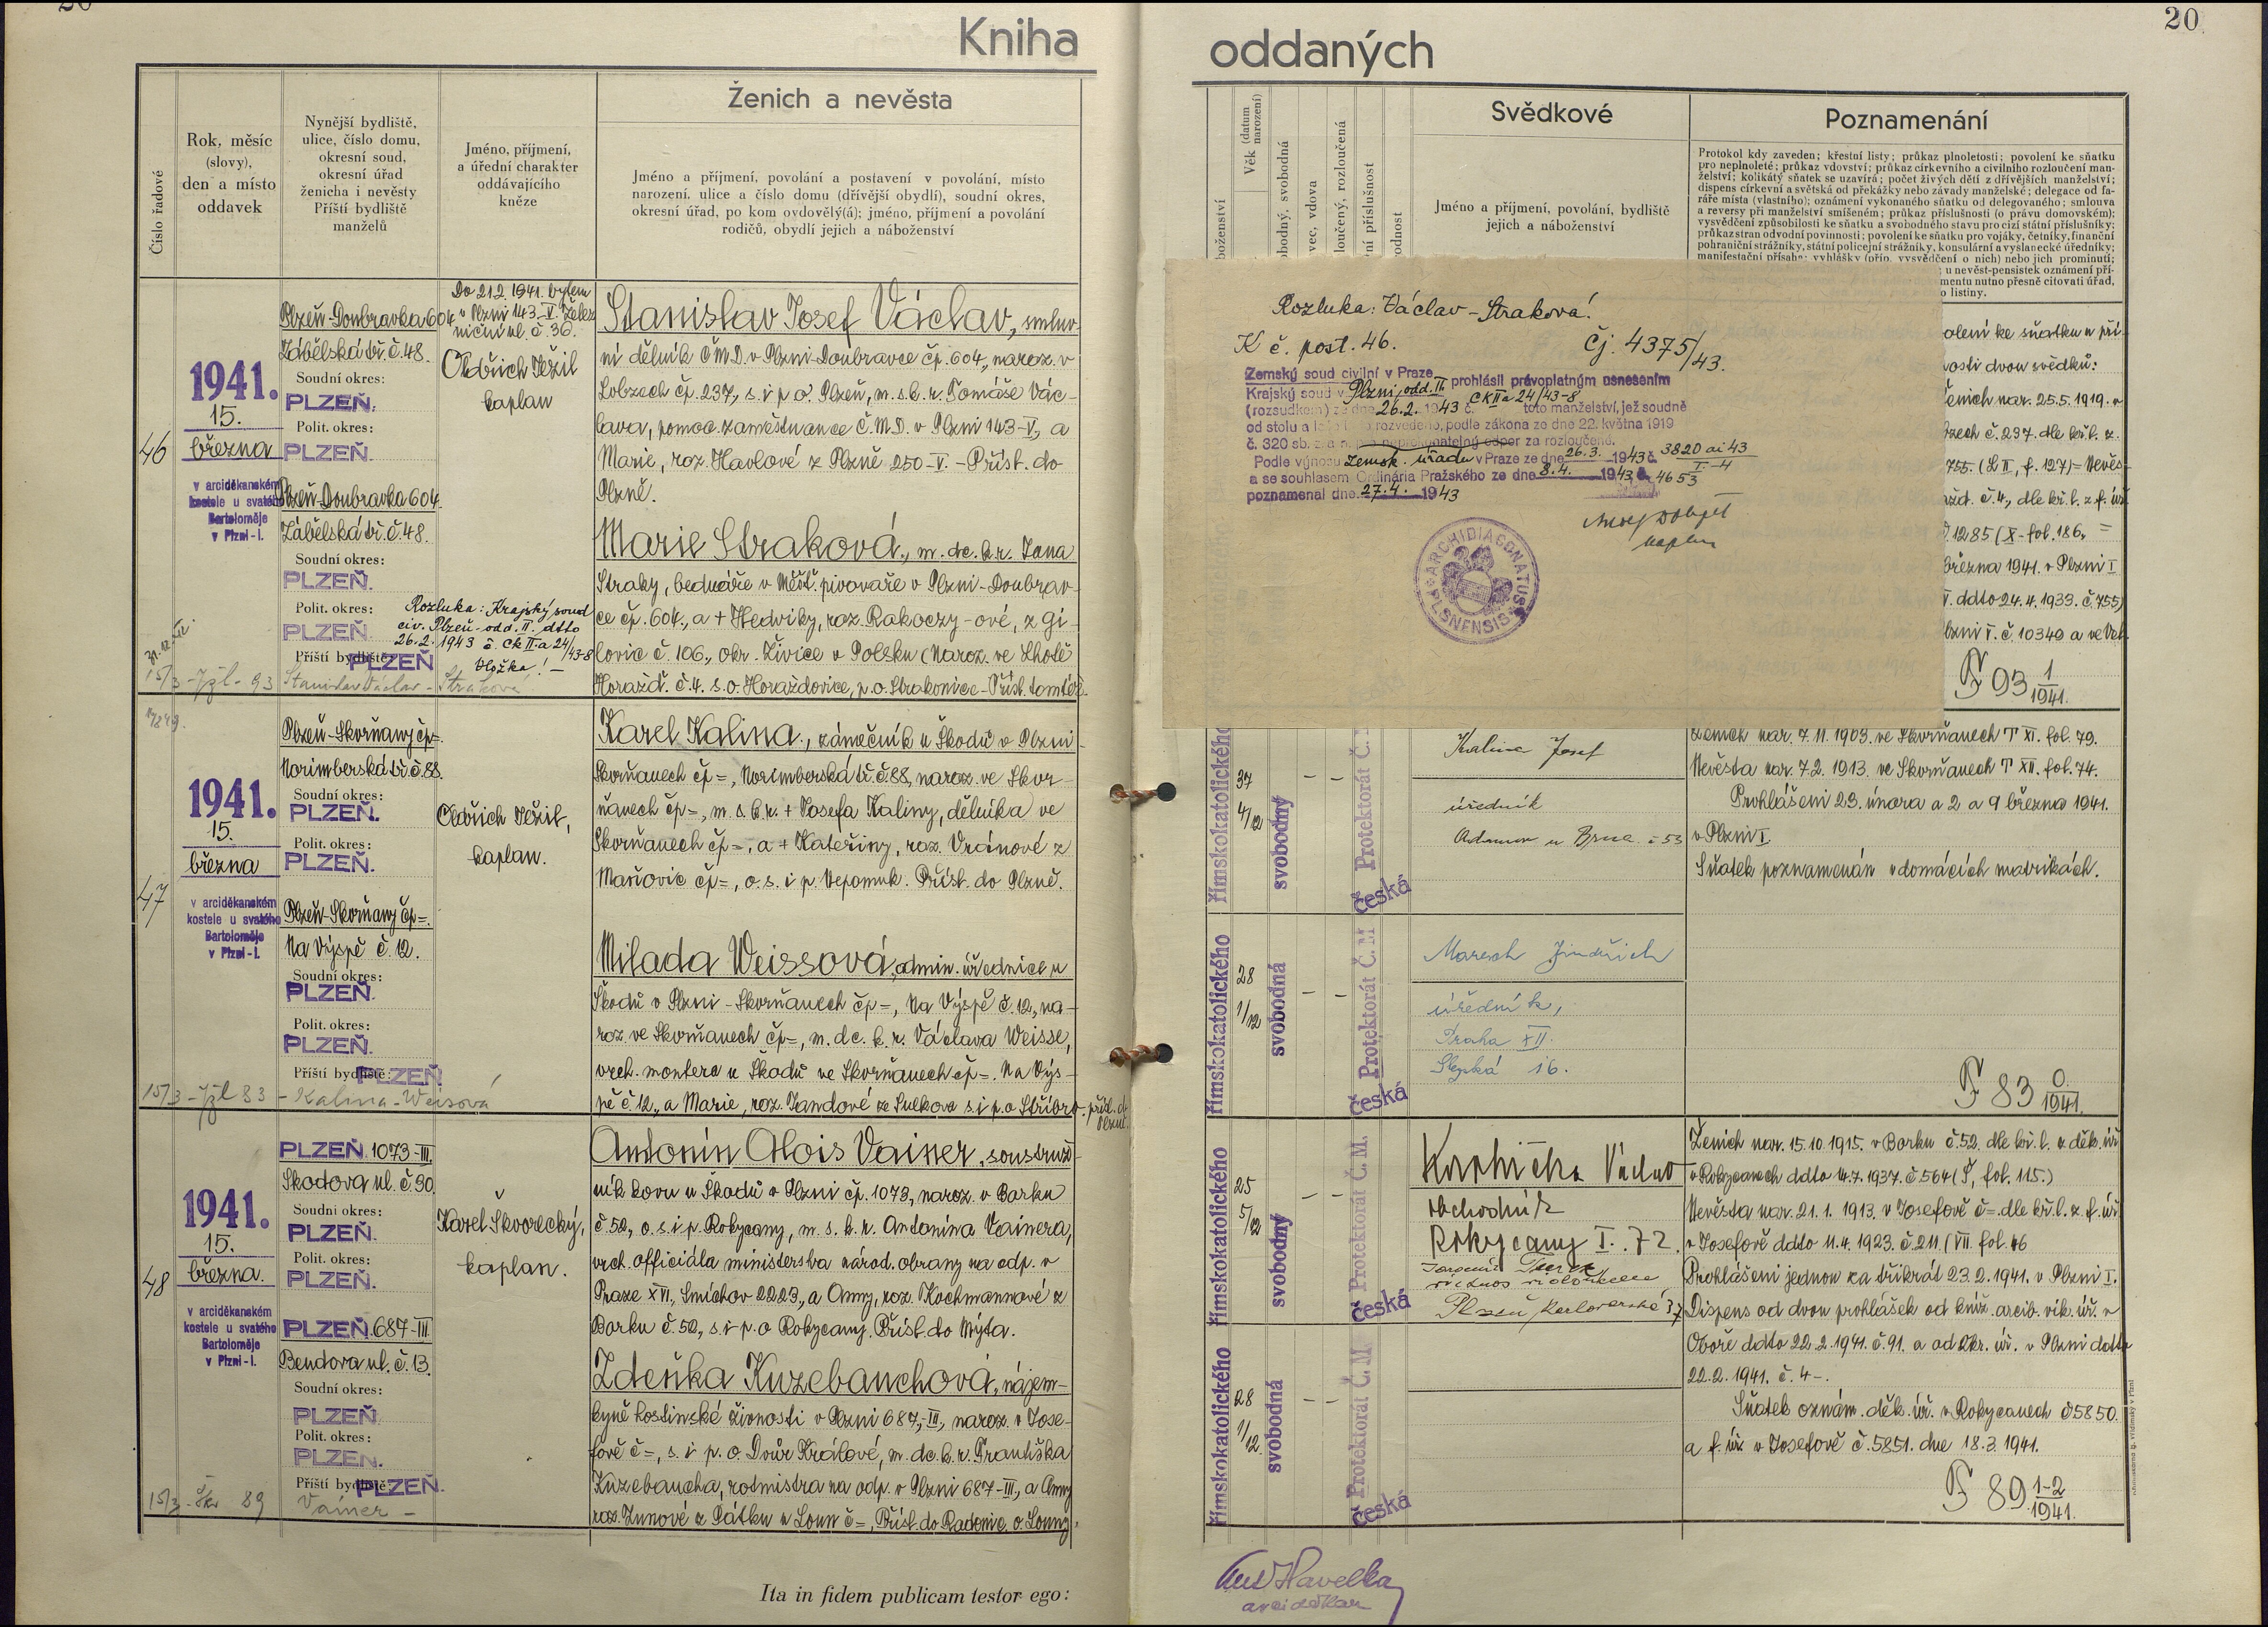 20
Kniha
oddaných
20
Číslo řadové
Rok, měsíc
(slovy),
den a místo
oddavek
Nynější bydliště,
ulice, číslo domu,
okresní soud,
okresní úřad
ženicha i nevěsty
Příští bydliště
manželů
Jméno, příjmení,
a úřední charakter
oddávajícího
kněze
Ženich a nevěsta
Jméno a příjmení, povolání a postavení v povolání, místo
narození, ulice a číslo domu (dřívější obydlí), soudní okres,
okresní úřad, po kom ovdověl(á); jméno, příjmení a povolání
rodičů, obydlí jejich a náboženství
Věk (datum narození)
Svědkové
Jméno a příjmení, povolání, bydliště
jejich a náboženství
Poznamenání
Protokol kdy zaveden; křestní listy; průkaz plnoletosti; povolení ke sňatku
pro neplnoleté; průkaz vdovství; průkaz církevního a civilního rozloučení man-
želství; kolikátý sňatek se uzavírá; počet živých dětí z dřívějších manželství;
dispens církevní a světská od překážky nebo závady manželské; delegace od fa-
ráře místa (vlastního); oznámení vykonaného sňatku od delegovaného; smlouva
a reversy při manželství smíšeném; průkaz příslušnosti (o právu domovském);
vysvědčení způsobilosti ke sňatku a svobodného stavu pro cizí státní příslušníky;
průkaz stran odvodní povinnosti; povolení ke sňatku pro vojáky, četníky, finanční
pohraniční strážníky, státní policejní strážníky, konsulární a vyslanecké úředníky;
manifestační přísaha; vyhlášky (příp. vysvědčení o nich) nebo jich prominutí;
u nevěst-pensistek oznámení pří-
mentu nutno přesně citovati úřad,
o listiny.
46
1941.
15.
března
v arciděkanském
kostele u svatého
Bartoloměje
v Plzni-I.
Plzeň-Doubravka 604
Zábělská tř. č. 48.
Soudní okres:
PLZEŇ.
Polit. okres:
PLZEŇ.
Plzeň-Doubravka 604.
Zábělská tř. č. 48.
Soudní okres:
PLZEŇ.
Polit. okres:
PLZEŇ.
Rozluka: Krajský soud
civ. Plzeň-odd. II. ddto
26.2.1943 č. Ck II-a 24/43-8
Vložka! -
Příští bydliště:
PLZEŇ
15/3 - Jžl - 93 Stanislav Václav - Straková
Do 21.2.1941. bytem
v Plzni 143-V. Želez
niční ul. č. 36.
Oldřich Ježil
kaplan
Stanislav Josef Václav, smluv-
ní dělník ČMD. v Plzni-Doubravce čp. 604., naroz. v
Lobzech čp. 237, s. i p. o. Plzeň, m. s. k. r. Tomáše Vác-
lava, pomoc. zaměstnance Č.M.D. v Plzni 143-V., a
Marie, roz. Havlové z Plzně 250-V. - Přísl. do
Plzně.
Marie Straková, m. dc. k. r. Jana
Straky, bednáře v Měšť. pivovaře v Plzni-Doubrav-
ce čp. 604., a + Hedviky, roz. Rakoczy-ové, z Gi-
lovic č. 106., okr. Živice v Polsku (Naroz. ve Lhotě
Horažď. č. 4. s. o. Horažďovice, p. o. Strakonice - Přísl. tamtéž.
Rozluka: Václav-Straková!
K č. post. 46.
Čj. 4375/43.
Zemský soud civilní v Praze
Krajský soud v Plzni, odd. II. prohlásil právoplatným usnesením
(rozsudkem) ze dne 26.2. 1943 č. Ck II a 24/43-8 toto manželství, jež soudně
od stolu a lože bylo rozvedeno, podle zákona ze dne 22. května 1919
č. 320 sb. z. a n. pro nepřekonatelný odpor za rozloučené.
Podle výnosu Zemsk. úřadu v Praze ze dne 26.3. 1943 č. 3820 ai 43 I-4
a se souhlasem Ordinária Pražského ze dne 8.4. 1943 č. 4653
poznamenal dne 27.4. 1943
kaplan
ARCHIDIACONATUS PLSNENSIS
olení ke sňatku u pří-
nosti dvou svědků:
Ženich nar. 25.5.1919. v
bzech č. 237. dle kř. l. z.
755. (L II, f. 127) = Nevěs-
ažď. č. 4., dle kř. l. z f. úř
1285 (X-fol. 186. =
března 1941. v Plzni I
V. ddto 24.4.1933. č. 755)
Plzni V. č. 10349 a ve Vel.
F 93 1/1941.
47
1941.
15.
března
v arciděkanském
kostele u svatého
Bartoloměje
v Plzni-I.
Plzeň-Skvrňany čp=.
Norimberská tř. č. 88.
Soudní okres:
PLZEŇ.
Polit. okres:
PLZEŇ.
Plzeň-Skvrňany čp=.
Na Výspě č. 12.
Soudní okres:
PLZEŇ.
Polit. okres:
PLZEŇ.
Příští bydliště:
PLZEŇ
15/3 - Jžl 83 - Kalina - Weisová
Oldřich Ježil,
kaplan.
Karel Kalina, zámečník u Škodů v Plzni-
Skvrňanech čp=, Norimberská tř. č. 88, naroz. ve Skvr-
ňanech čp=, m. s. k. r. + Josefa Kaliny, dělníka ve
Skvrňanech čp=, a + Kateřiny, roz. Vránové z
Maňovic čp=, o. s. i p. Nepomuk. Přísl. do Plzně.
Milada Weissová, admin. úřednice u
Škodů v Plzni-Skvrňanech čp=, Na Výspě č. 12, na-
roz. ve Skvrňanech čp=, m. dc. k. r. Václava Weisse,
vrch. montera u Škodů ve Skvrňanech čp=. Na Výs-
pě č. 12., a Marie, roz. Jandové ze Sulkova s. i p. o Stříbro. přísl. d. Plzně.
římskokatolického
37 4/12
svobodný
– –
Protektorát Č.
česká
Kalina Josef
úředník
Adamov u Brna č 53
římskokatolického
28 1/12
svobodná
– –
Protektorát Č. M
česká
Maresh Jindřich
úředník,
Praha XII.
Slezská 16.
Ženich nar. 7.11.1903. ve Skvrňanech T XI. fol. 79.
Nevěsta nar. 7.2.1913. ve Skvrňanech T XII. fol. 74.
Prohlášeni 23. února a 2 a 9 března 1941.
v Plzni I.
Sňatek poznamenán v domácích matrikách.
F 83 0/1941.
48
1941.
15.
března.
v arciděkanském
kostele u svatého
Bartoloměje
v Plzni-I.
PLZEŇ. 1073-III.
Škodova ul. č. 30.
Soudní okres:
PLZEŇ.
Polit. okres:
PLZEŇ.
PLZEŇ. 687-III.
Bendova ul. č. 13.
Soudní okres:
PLZEŇ.
Polit. okres:
PLZEŇ.
Příští bydliště:
PLZEŇ.
15/3 - Škv 89 Vainer -
Karel Škvorecký,
kaplan.
Antonín Alois Vainer, soustruž-
ník kovu u Škodů v Plzni čp. 1073, naroz. v Borku
č. 52, o. s. i p. Rokycany, m. s. k. r. Antonína Vainera,
vrch. officiála ministerstva národ. obrany na odp. v
Praze XVI., Smíchov 2223., a Anny, roz. Kochmannové z
Borku č. 52, s. i p. o Rokycany. Přísl. do Mýta.
Zdeňka Kuzebauchová, nájem-
kyně hostinské živnosti v Plzni 687,-III, naroz. v Jose-
fově č=, s. i p. o. Dvůr Králové, m. dc. k. r. Františka
Kuzebaucha, rotmistra na odp. v Plzni 687-III., a Anny
roz. Zunové z Pátku u Loun č=, Přísl. do Radonic, o. Louny.
římskokatolického
25 5/12
svobodný
– –
Protektorát Č. M.
česká
Václav
obchodník
Rokycany I. 72.
Plzeň Karlovarská 37
římskokatolického
28 1/12
svobodná
– –
Protektorát Č. M.
česká
Ženich nar. 15.10.1915. v Borku č. 52. dle kř. l. z děk. úř
v Rokycanech ddto 14.7.1937. č 564 (Š, fol. 115.)
Nevěsta nar. 21.1.1913. v Josefově č=. dle kř. l. z. f. úř
v Josefově ddto 11.4.1923. č. 211. (VII. fol. 46
Prohlášeni jednou za třikrát 23.2.1941. v Plzni I.
Dispens od dvou prohlášek od kníž. arcib. vik. úř. v
Oboře ddto 22.2.1941. č. 91. a od Okr. úř. v Plzni ddto
22.2.1941. č. 4-.
Sňatek oznám. děk. úř. v Rokycanech č 5850.
a f. úř. v Josefově č. 5851. dne 18.3.1941.
F 89 1-2/1941.
Ita in fidem publicam testor ego:
Ant Havelka
arciděkan